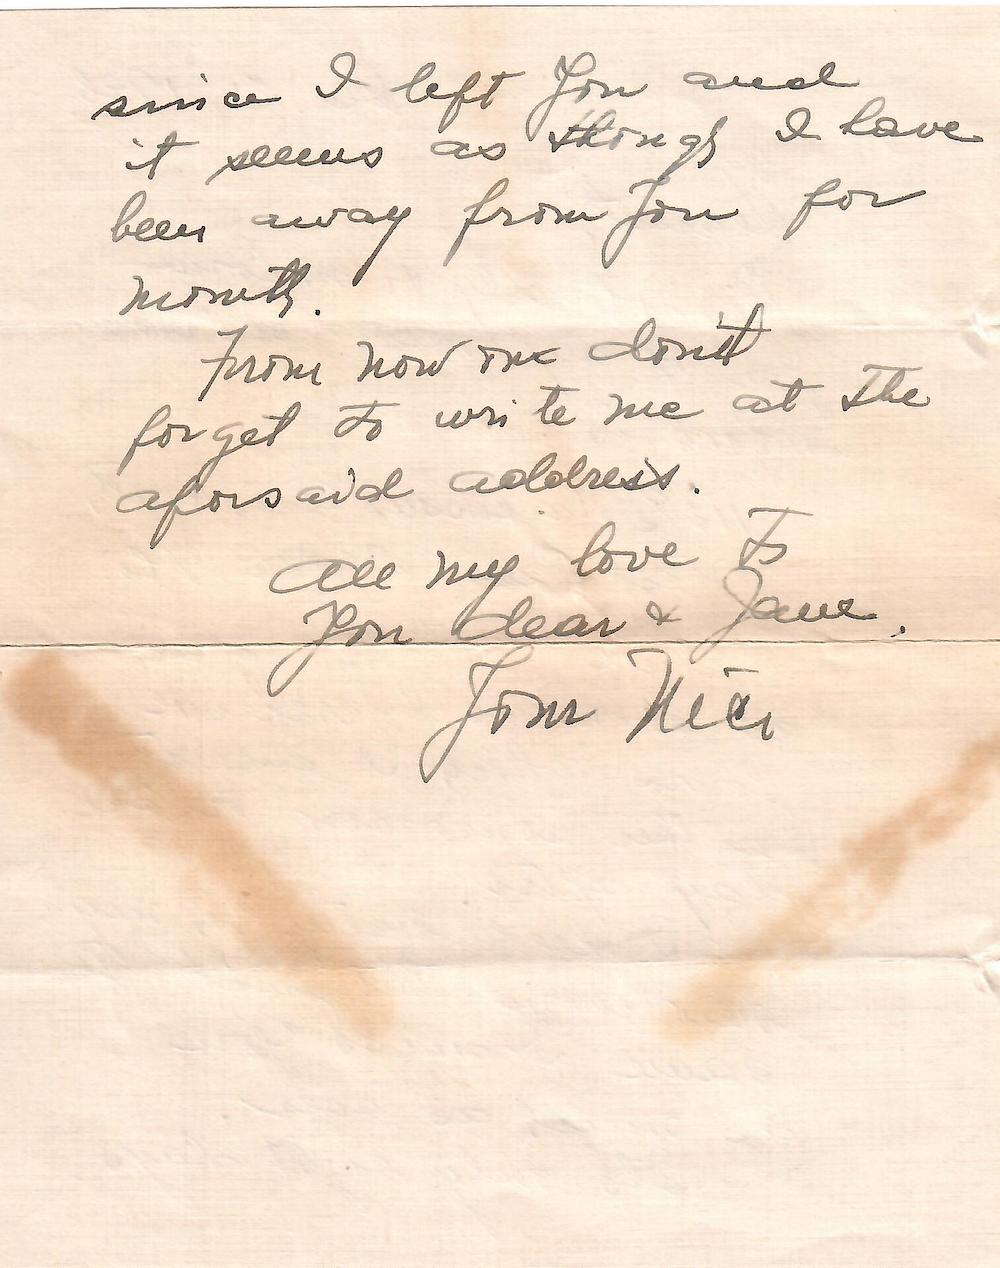 since I left you and
it seems as though I have
been away from you for
month.
From now on don't
forget to write me at the
aforsaid address.
All my love to
You dear & Jane.
Your Nick